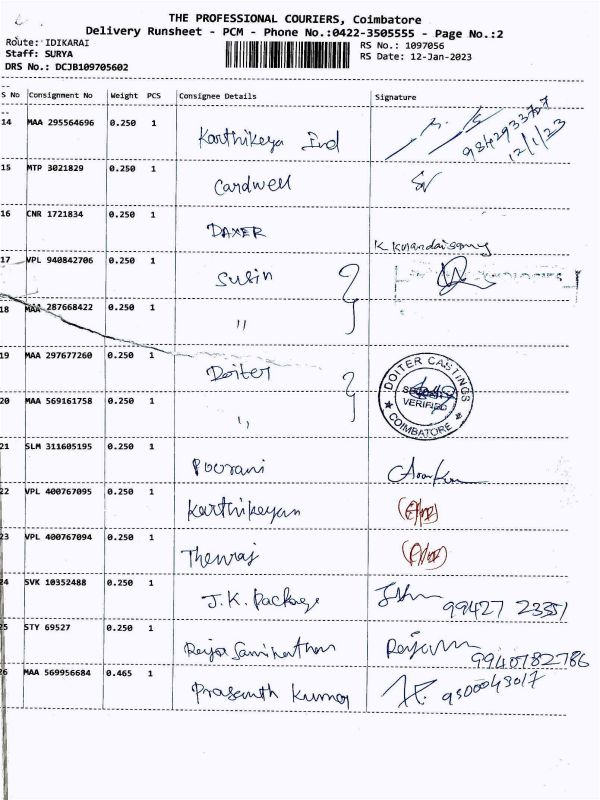 THE PROFESSIONAL COURIERS, Coimbatore
Delivery Runsheet - PCM - Phone No.:0422-3505555 - Page No.:2
Route: IDIKARAI RS No.: 1097056
Staff: SURYA RS Date: 12-Jan-2023
DRS No.: DCJB109705602
S No Consignment No Weight PCS Consignee Details Signature
14 MAA 295564696 0.250 1 Karthikeya Ind 9842933707
12/1/23
15 MTP 3021829 0.250 1 Cardwell
16 CNR 1721834 0.250 1 DAXER
K Kulandaisamy
17 VPL 940842706 0.250 1 Susin
18 MAA 287668422 0.250 1 "
19 MAA 297677260 0.250 1 Doiter DOITER CASTINGS
VERIFIED
COIMBATORE
20 MAA 569161758 0.250 1 "
21 SLM 311605195 0.250 1 Poorani
22 VPL 400767095 0.250 1 Karthikeyan
23 VPL 400767094 0.250 1 Thenraj
24 SVK 10352488 0.250 1 J.K. Package 99427 22351
25 STY 69527 0.250 1 9940782786
26 MAA 569956684 0.465 1 Prasanth Kumar 9500043017